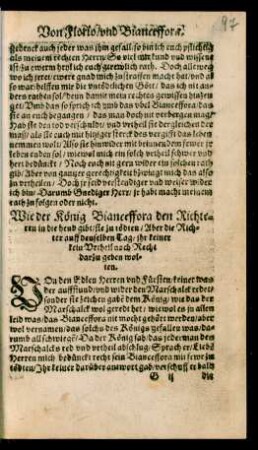 Von Florio/vnd Bianceffora.
97
gedenck auch jeder was jhm gefall. so bin ich euch pflichtig
als meinem rechten Herrn So viel mir kund vnd wissend
ist zu ewern heyl ich euch getrewlich rath. Doch alle weg
wo ich jrret/ ewere gnad mich zu straffen macht hat/ vnd al
so war helffen mir die vntödtlichen Gött/ das ich nit an-
ders reden sol/ denn damit mein rechtes gewissen in halt
get/ Vnd das so sprich ich vmb das vbel Bianceffora/ das
sie an euch begangen / das man doch mit verbergen mag/
Das sie den tod verschuldt/ vnd vrtheil sie der gleichen der
maß/ als sie euch mit hitziger
nemmen wolt/ Also sie hinwider mit brinnendem fewer jr
leben enden sol / wiewol mich ein solch vrtheil schwer vnd
hert bedünckt / Noch rath
ich bin / Aber von gantzer gerechtigkeit bezwingt mich das also
zu vrtheilen / Doch jr seid verstendiger vnd weiser wider
Darumb Gnediger Herr/ je habt macht meinem
rath zu folgen oder nicht.
Wie der König Bianceffora den Richte-
rn in die hend gibt/ sie zu tödten / Aber die Rich-
ter auff denselben Tag/ jhr keiner
kein Vrtheil nach Recht
darzu geben wol-
ten.
DOa den Edlen Herren vnd Fürsten keiner was
der auffstund/ vnd wider den Marschalck redet/
sonder sie zeichen gabē dem König/ wie das der
Marschalck wol geredt het / wiewol es jn allen
leid was/ das Bianceffora nit mocht gehört werden/ aber
wol vernamen/ das solchs des Königs gefallen was/ da-
rumb all schwiegē/ Da der König sah/ das jederman den
Marschalcks red vnd vrtheil abschlug/ Sprach er/ Liebē
Herren mich bedünckt recht sein Bianceffora mit fewr zu
tödten/ Jhr keiner darüber antwort gab/ verschuff er bald
G ij die